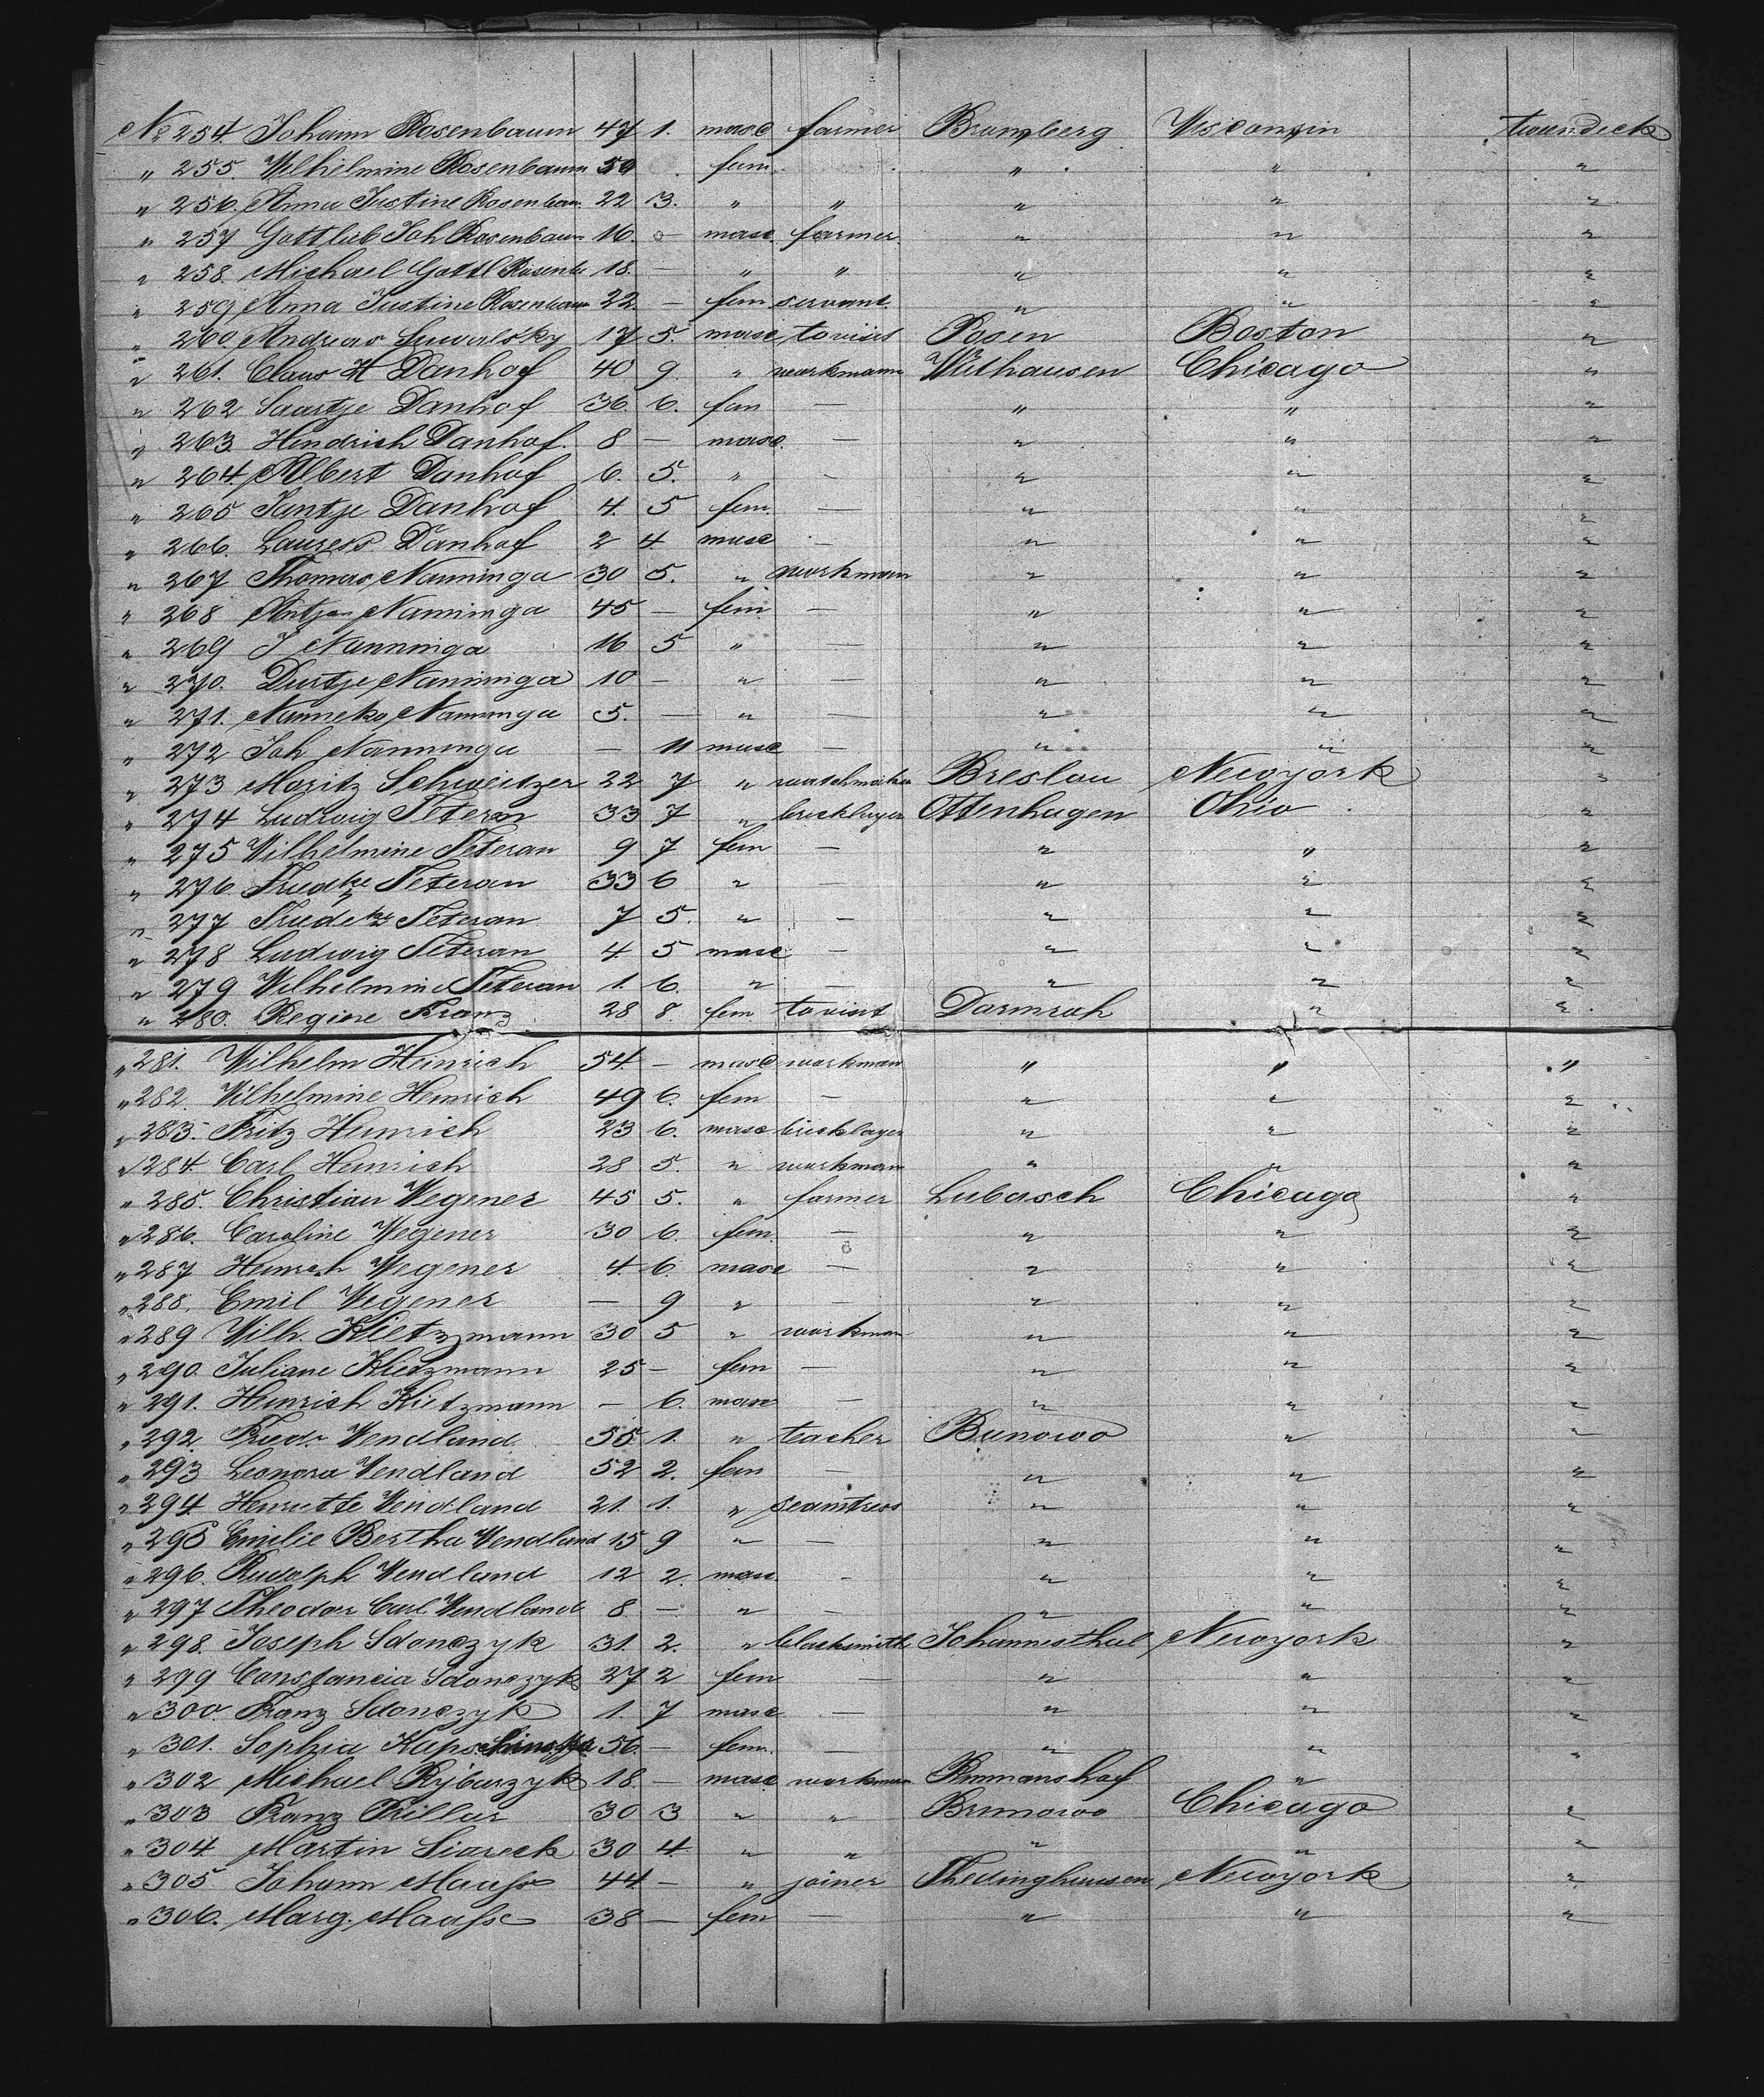 No 254. Johann Rosenbaum 47 1. masc farmer Bromberg Wisconsin tweendeck
" 255. Wilhelmine Rosenbaum 50 . fem " " "
" 256. Anna Justine Rosenbau 22 3. " " " " "
" 257 Gottlieb Joh Rosenbaum 16. – masc. farmer " " "
" 258. Michael Gottl Rosenb 18. – " " " " "
" 259 Anna Justine Rosenbaum 22. – fem servant " " "
" 260 Andreas 17 5. masc to visit Posen Boston "
" 261. Claus H Danhof 40 9 " workmann Withausen Chicago "
" 262 Saartje Danhof 36. 6. fem — " " "
" 263. Hendrich Danhof. 8 – masc. — " " "
" 264. Albert Danhof 6. 5. " — " " "
" 265 Jantje Danhof 4. 5 fem. — " " "
" 266. Danhof 2 4. masc — " " "
" 267 Thomas Nanninga 30 5. " workman " " "
" 268 Antje Nanninga 45 – fem — " " "
" 269 J Nanninga 16 5 " — " " "
" 270. Nanninga 10 – " — " " "
" 271. Nanneka Nanninga 5. — " — " " "
" 272 Joh Nanninga – 11 masc — " " "
" 273 Moritz Schweitzer 22 7 " Breslau Newyork "
" 274 Ludwig Teteran 33 7 " bricklayer Ottenhagen Ohio "
" 275 Wilhelmine Teteran 9 7 fem — " " "
" 276. Friedke Teteran 33 6 " — " " "
" 277 Teteran 7 5. " — " " "
" 278 Ludwig Teteran 4 5 masc — " " "
" 279 Wilhelmine Teteran 1. 6. " — " " "
" 280. Regine Franz 28 8. fem. to visit "  "
" 281. Wilhelm Heinrich 54. – masc workman " " "
" 282. Wilhelmine Heinrich 49 6. fem — " " "
" 283. Fritz Heinrich 23 6. masc bricklayer " " "
" 284. Carl Heinrich 28 5. " workman " " "
" 285. Christian Wegener 45 5. " farmer Lubasch Chicago "
" 286. Caroline Wegener 30 6. fem. — " " "
" 287 Heinrich Wegener 4. 6. masc — " " "
" 288. Emil Wegener – 9 " — " " "
" 289 Wilh. Kietzmann 30 5 " workman " " "
" 290. Juliane Kietzmann 25 – fem — " " "
" 291. Heinrich Kietzmann – 6. masc — " " "
" 292. Friedr Wendland 55 1. " teacher Bunowo " "
" 293 Leonora Wendland 52 2. fem — " " "
" 294. Henriette Wendland 21. 1. " seamtress " " "
" 295 Emilie Bertha Wendland 15 9 " — " " "
" 296. Rudolph Wendland 12 2. masc. — " " "
" 297 Theodor Carl Wendland 8 – " — " " "
" 298. Joseph Sdonczyk 31. 2. " blacksmith Johannesthal Newyork "
" 299 Constancia Sdonczyk 27 2 fem — " " "
" 300. Franz Sdonczyk 1. 7 masc — " " "
" 301. Sophia 56. – fem. — " " "
" 302 Michael Rybarzyk 18. – masc workman "
" 303 Franz 30 3 " " Brunowo Chicago "
" 304. Martin 30 4. " " " " "
" 305 Johann Maass 44 – " joiner Thedinghausen Newyork "
" 306. Marg. Maasse 38 – fem — " " "